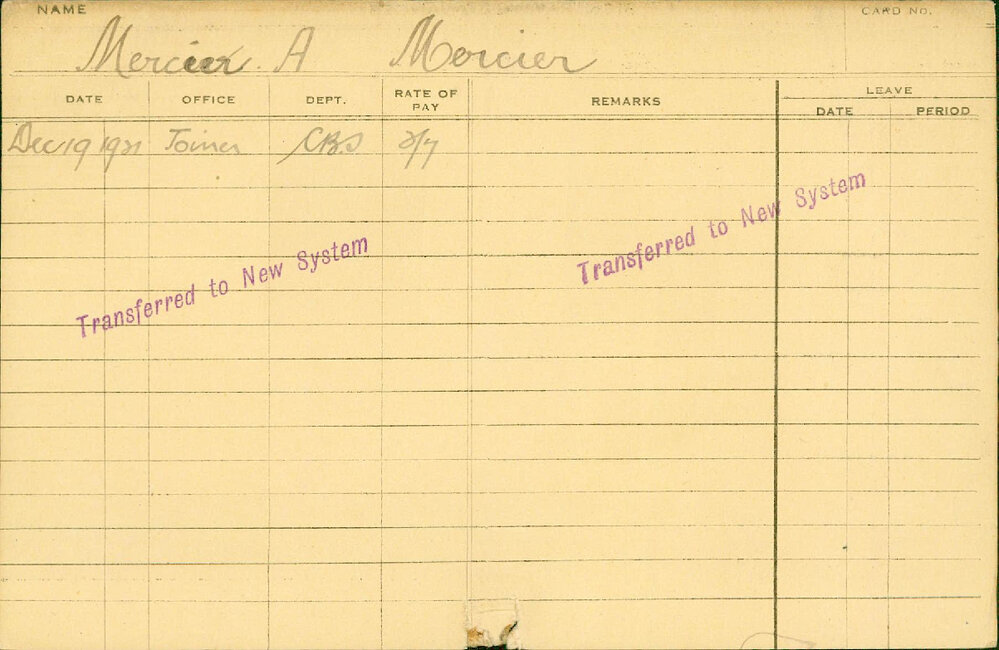 NAME CARD No.
Mercier. A Mercier
DATE OFFICE DEPT. RATE OF PAY REMARKS LEAVE
DATE PERIOD
Dec 19 1921 Joiner CBS 2/7
Transferred to New System
Transferred to New System